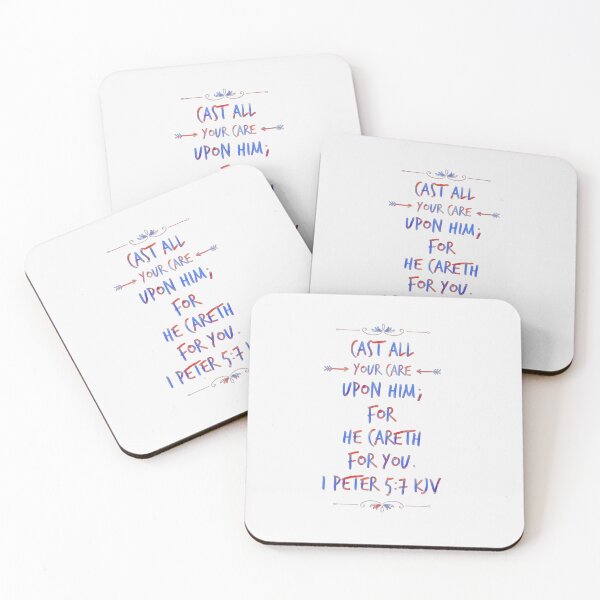 CAST ALL
YOUR CARE
UPON HIM;
CAST ALL
YOUR CARE
UPON HIM;
FOR
HE CARETH
FOR YOU.
CAST ALL
YOUR CARE
UPON HIM;
FOR
HE CARETH
FOR YOU.
1 PETER 5:7
CAST ALL
YOUR CARE
UPON HIM;
FOR
HE CARETH
FOR YOU.
1 PETER 5:7 KJV